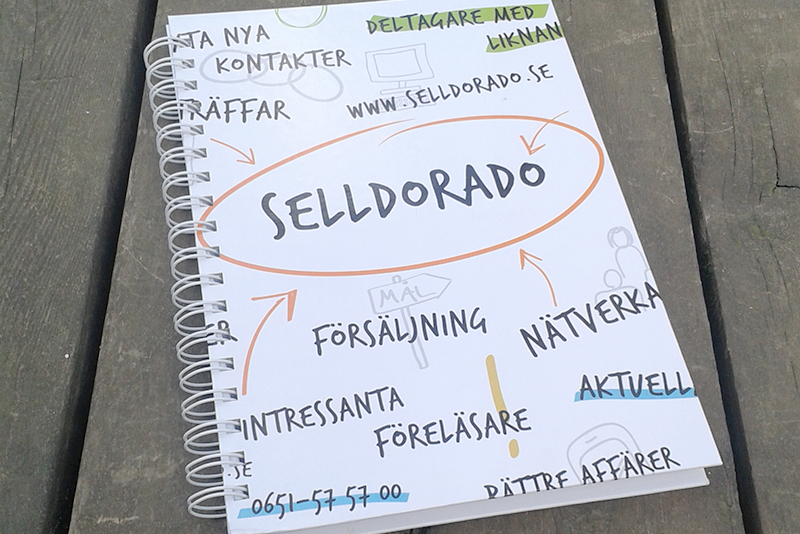 TA NYA
KONTAKTER
DELTAGARE MED
LIKNAN
TRÄFFAR
WWW.SELLDORADO.SE
SELLDORADO
MÅL
FÖRSÄLJNING
NÄTVERKA
INTRESSANTA
FÖRELÄSARE
AKTUELL
.SE
0651-57 57 00
BÄTTRE AFFÄRER